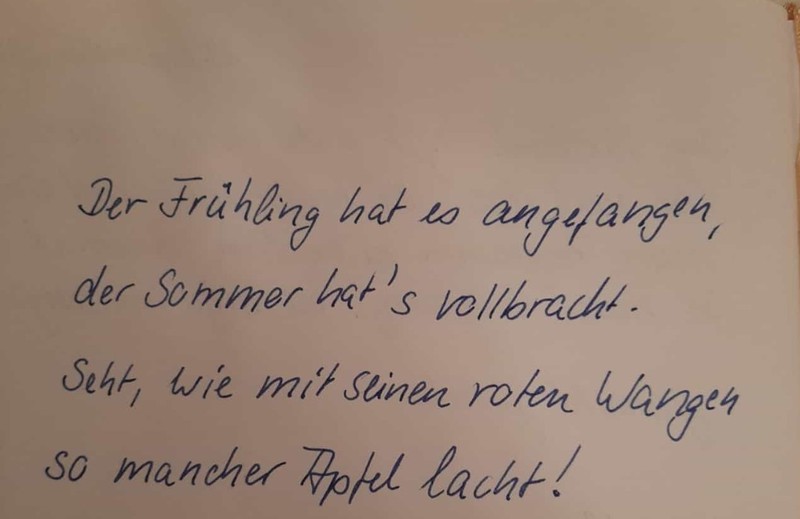 Der Frühling hat es angefangen,
der Sommer hat's vollbracht.
Seht, wie mit seinen roten Wangen
so mancher Apfel lacht!